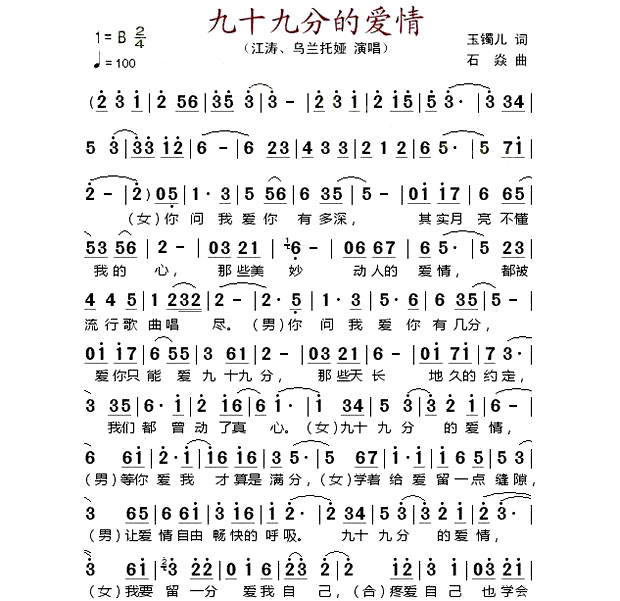 九十九分的爱情
1=B 2/4
（江涛、乌兰托娅 演唱）
玉镯儿 词
♩=100
石 焱 曲
(2 3 1|2 56|35 3|3 -|3 1|2 15|5 3·|3 34|
5 3|33 12|6 -|6 -|2 23|4 3|2 12|6 5·|5 71|
2 -|2) 05|1·3|5 56|3 5·|5 -|01 17|6 65|
（女）你 问 我 爱 你 有 多 深， 其 实 月 亮 不 懂
53 56|2 -|03 21|6 -|06 67|6 5·|5 23|
我 的 心， 那 些 美 妙 动 人 的 爱 情， 都 被
4 4 5|1 232|2 -|2·5|1·3|5·6|6 35|5·|
流 行 歌 曲 唱 尽。（男）你 问 我 爱 你 有 几 分，
01 17|6 55|3 61|2 -|03 21|71 71|7 3·|
爱 你 只 能 爱 九 十 九 分， 那 些 天 长 地 久 的 约 定，
3 35|6·1|2 16|6 1·|1 34|5 3|3 2 1|6 -|
我 们 都 曾 动 了 真 心。（女）九 十 九 分 的 爱 情，
（男）等 你 爱 我 才 算 是 满 分，（女）学 着 给 爱 留 一 点 缝 隙，
（男）让 爱 情 自 由 畅 快 的 呼 吸。 九 十 九 分 的 爱 情，
（女）我 要 留 一 分 爱 我 自 己，（合）疼 爱 自 己 也 学 会